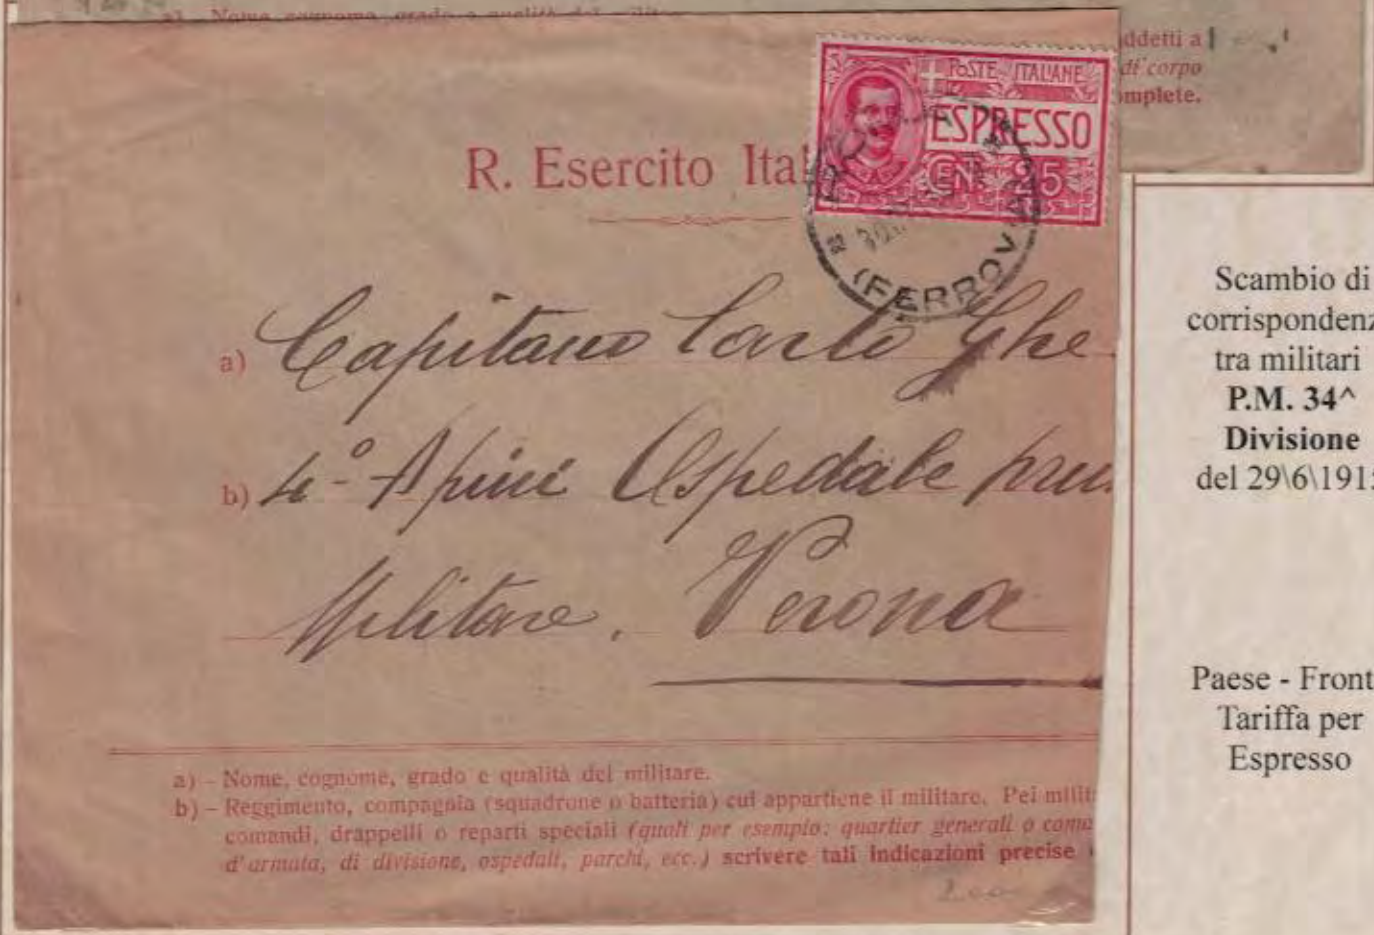 a) Nome cognome, grado e qualità del
ddetti a
di corpo
omplete.
POSTE ITALIANE
ESPRESSO
CENT 25
R. Esercito Ital
(FERROV
a) Capitano Carlo Ghe
b) 4° Alpini Ospedale
Militare. Verona
a) – Nome, cognome, grado e qualità del militare.
b) – Reggimento, compagnia (squadrone o batteria) cui appartiene il militare. Pei milit
comandi, drappelli o reparti speciali (quali per esempio: quartier generali o coma
d'armata, di divisione, ospedali, parchi, ecc.) scrivere tali indicazioni precise
Scambio di
corrispondenz
tra militari
P.M. 34^
Divisione
del 29\6\1915
Paese - Front
Tariffa per
Espresso